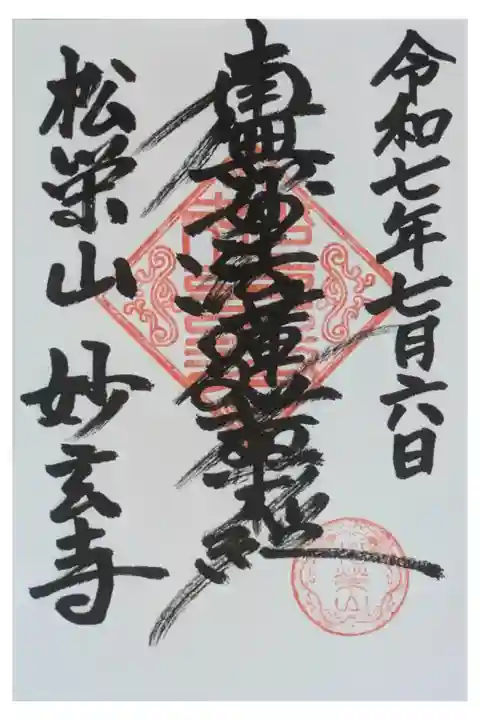 令和七年七月六日
南無妙法蓮華経
松栄山 妙玄寺